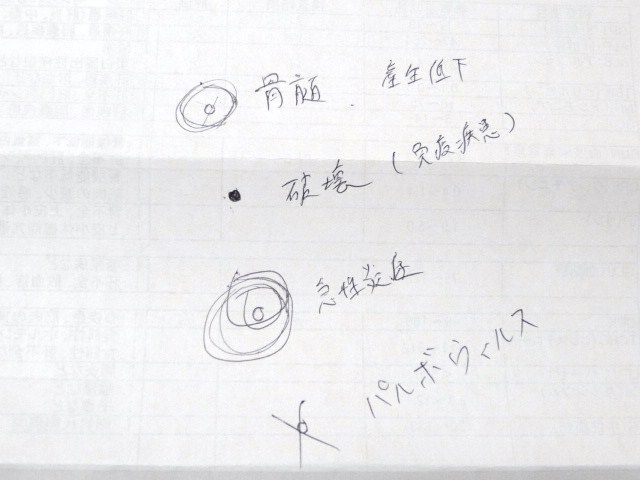 骨髄 . 産生低下
破壊 (免疫疾患)
急性炎症
パルボウィルス